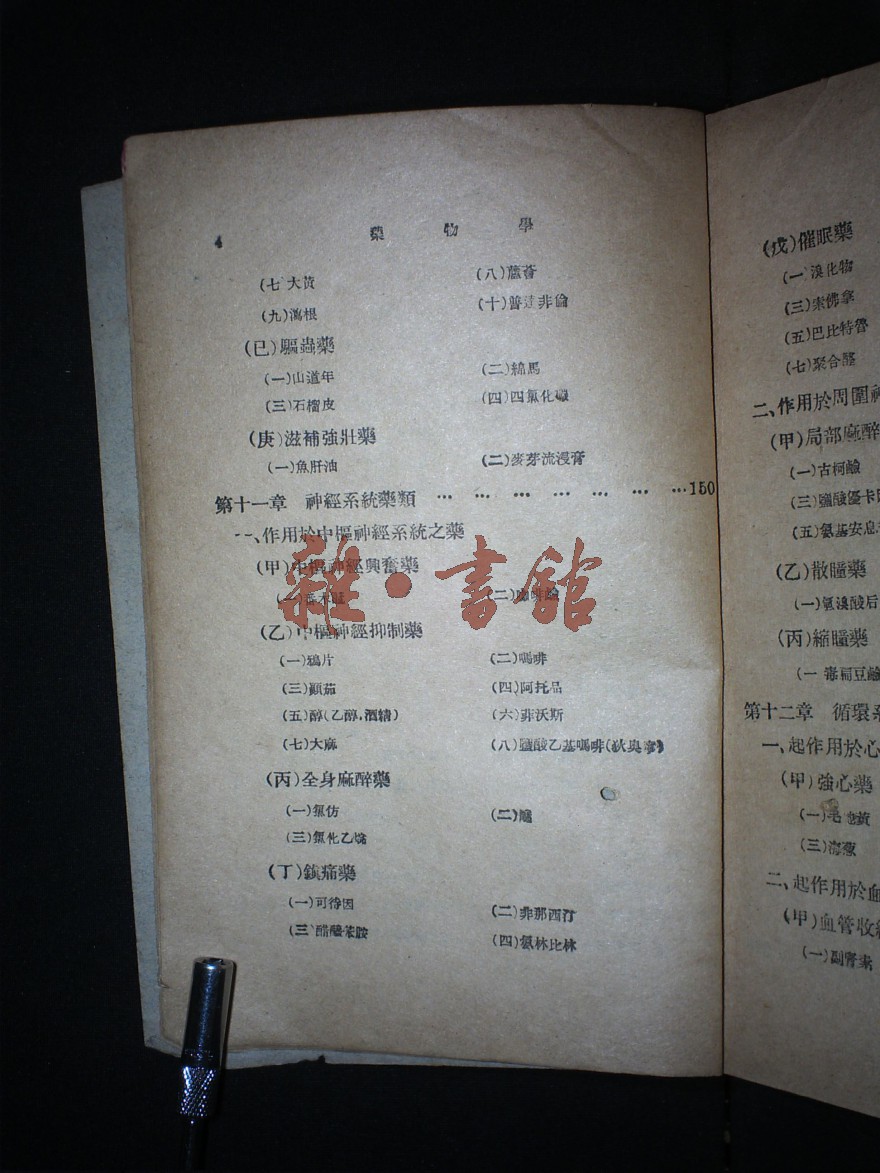 4 藥物學
(七)大黃 (八)蘆薈
(九)瀉根 (十)普達非倫
(巳)驅蟲藥
(一)山道年 (二)綿馬
(三)石榴皮 (四)四氯化碳
(庚)滋補強壯藥
(一)魚肝油 (二)麥芽流浸膏
第十一章 神經系統藥類 … … … … … … …150
一、作用於中樞神經系統之藥
(甲)中樞神經興奮藥
(二)咖啡鹼
雜·書館
(乙)中樞神經抑制藥
(一)鴉片 (二)嗎啡
(三)顚茄 (四)阿托品
(五)醇(乙醇,酒精) (六)菲沃斯
(七)大麻 (八)鹽酸乙基嗎啡
(丙)全身麻醉藥
(一)氯仿 (二)醚
(三)氯化乙烷
(丁)鎮痛藥
(一)可待因 (二)非那西汀
(三)醋醯苯胺 (四)氨林比林
(戊)催眠藥
(一)溴化物
(三)索佛拿
(五)巴比特魯
(七)聚合醛
二、作用於周圍神
(甲)局部麻醉
(一)古柯鹼
(三)鹽酸優卡因
(五)氨基安息
(乙)散瞳藥
(一)氫溴酸后
(丙)縮瞳藥
(一)毒扁豆鹼
第十二章 循環系
一、起作用於心
(甲)強心藥
(一)毛地黃
(三)海葱
二、起作用於血
(甲)血管收縮
(一)副腎素